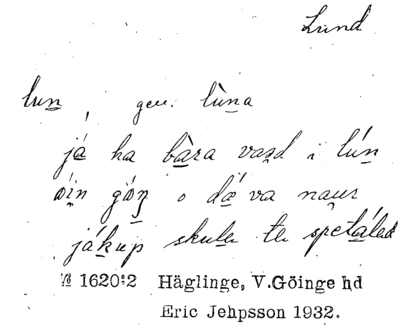 Lund
lun̲, gen. lùna
já̲ ha bà̲ra vaṉd i lún̲
öi̲n gó̲ŋ o dá̲ va na̲ur
já̲k̲up skula̲ te spetá̲lad
1620:2 Häglinge, V.Göinge hd
Eric Jehpsson 1932.